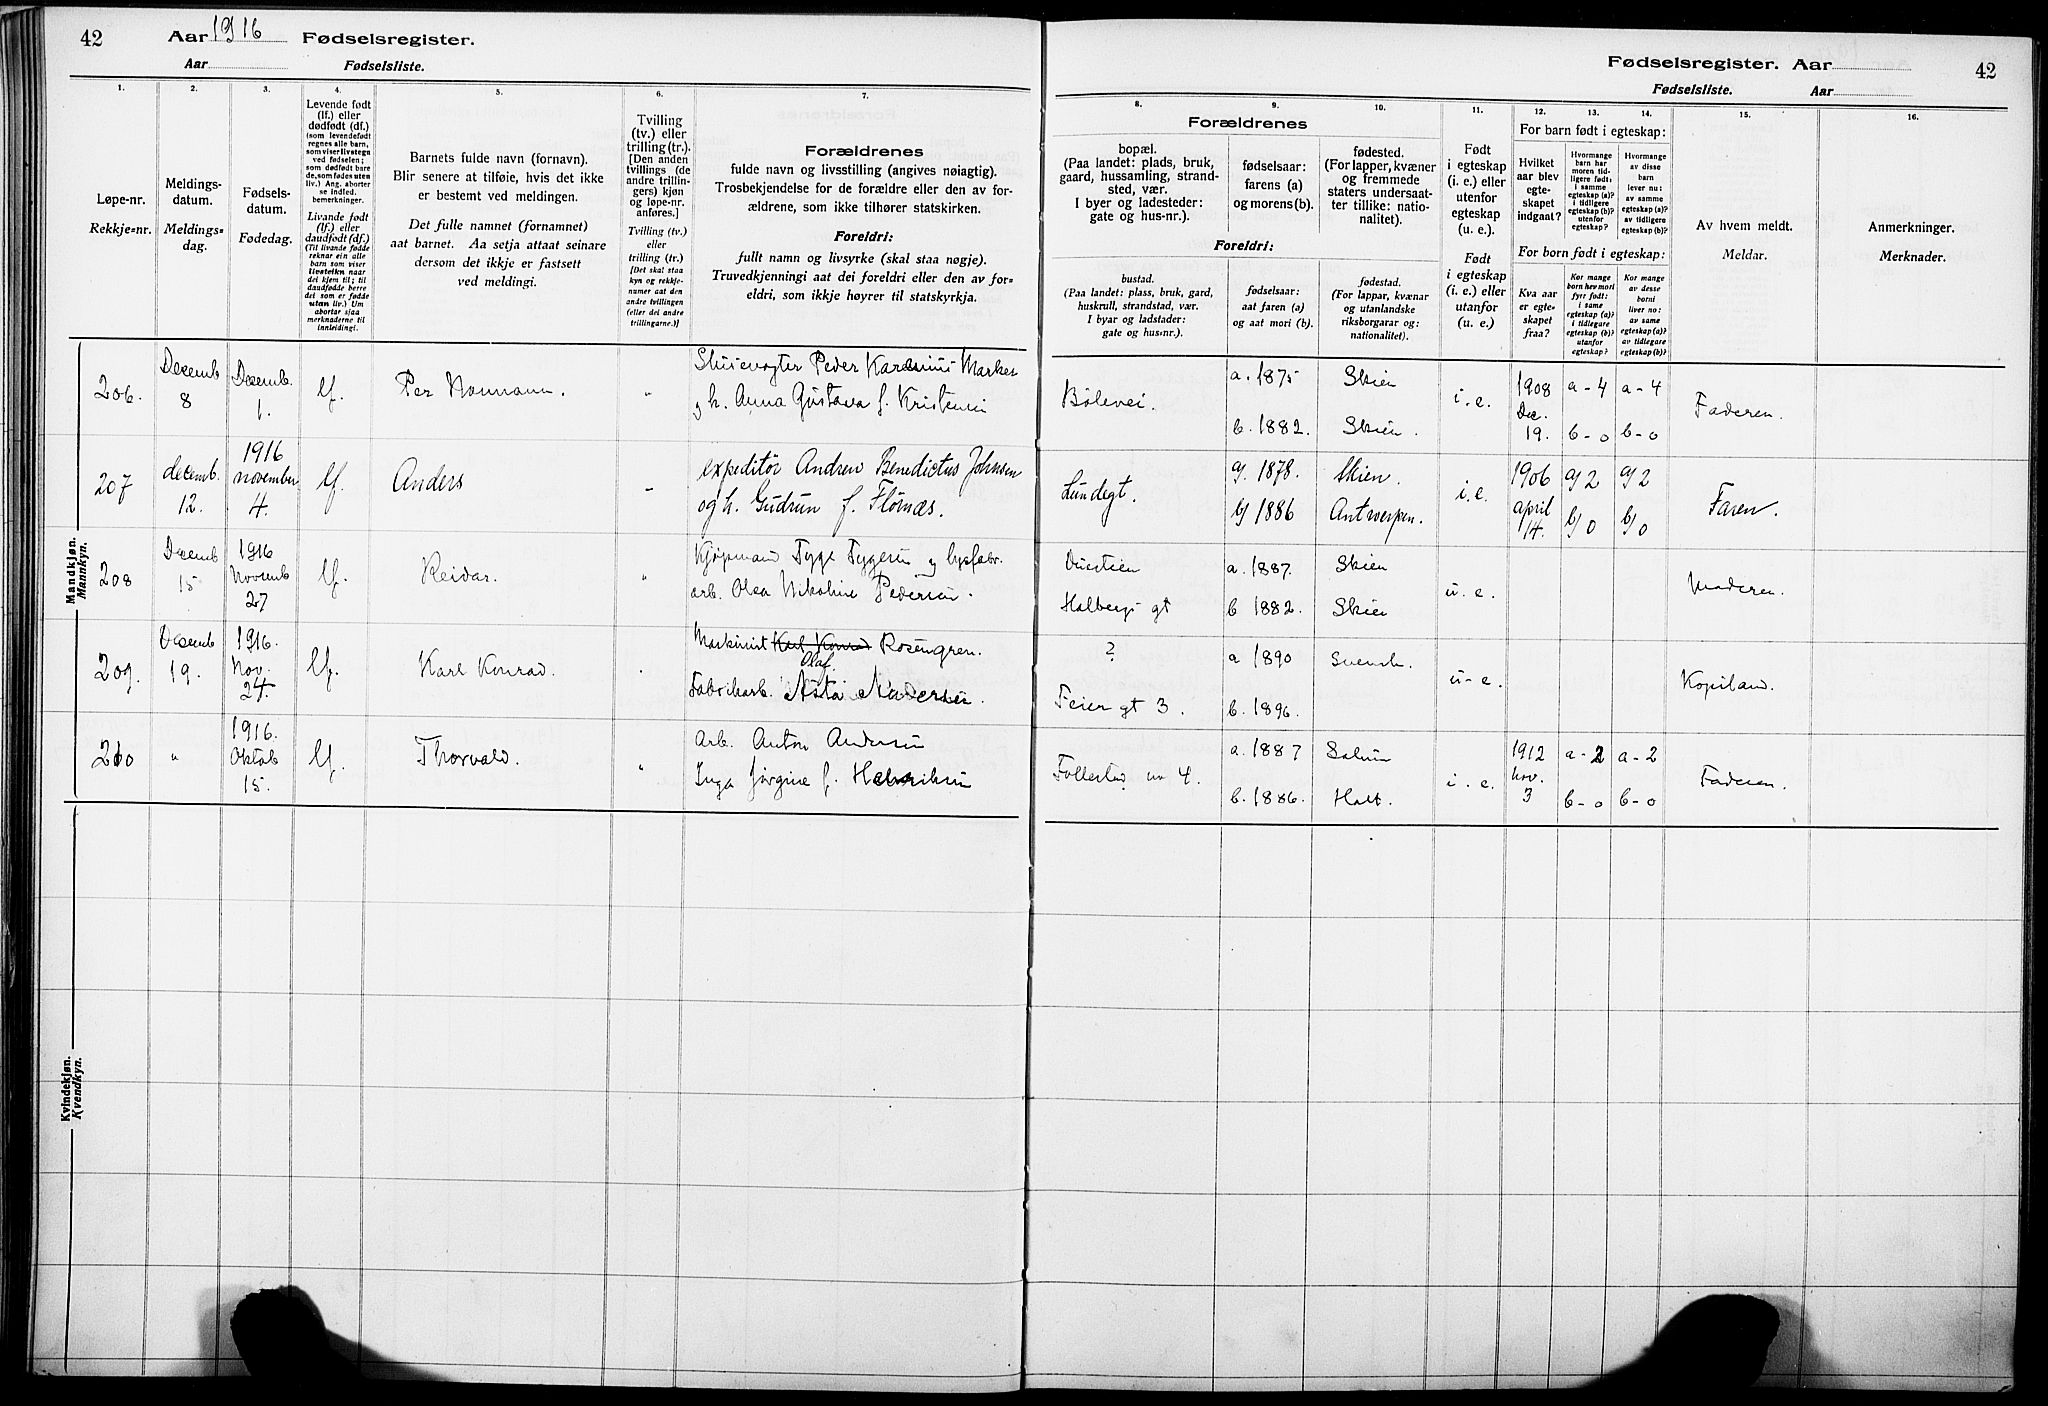 42 Aar 1916 Fødselsregister.
Aar Fødselsliste.
1. 2. 3. 4. 5. 6. 7.
Løpe-nr.
Rekkje=nr.
Meldings-
datum.
Meldings=
dag.
Fødsels-
datum.
Fødedag.
Levende født
(lf.) eller
dødfødt (df.)
(som levendefødt
regnes alle barn,
som viser livstegn
ved fødselen;
som dødfødt bare
de, som fødes uten
liv.) Ang. aborter
se indled.
bemerkninger.
Livande født
(lf.) eller
daudfødt (df.)
(Til livande fødde
reknar ein alle
barn som viser
livsteikn naar
dei kjem til; til
daudfødde berre
dei som er fødde
utan liv.) Um
abortar sjaa
merknaderne til
innleidingi.
Barnets fulde navn (fornavn).
Blir senere at tilføie, hvis det ikke
er bestemt ved meldingen.
Det fulle namnet (fornamnet)
aat barnet. Aa setja attaat seinare
dersom det ikkje er fastsett
ved meldingi.
Tvilling
(tv.) eller
trilling (tr.).
[Den anden
tvillings (de
andre trillin-
gers) kjøn
og løpe-nr.
anføres.]
Tvilling (tv.)
eller
trilling (tr.)
[Det skal staa
kyn og rekkje-
numer aat den
andre tvillingen
(eller dei andre
trillingarne.)]
Forældrenes
fulde navn og livsstilling (angives nøiagtig).
Trosbekjendelse for de forældre eller den av for-
ældrene, som ikke tilhører statskirken.
Foreldri:
fullt namn og livsyrke (skal staa nøgje).
Truvedkjenningi aat dei foreldri eller den av for=
eldri, som ikkje høyrer til statskyrkja.
Mandkjøn.
Mannkyn.
206. Decemb 8 Decemb. 1. lf. Per Normann. " Peder Marker
og h. Anna Gustava f. Kristensen
207 decemb. 12. 1916 november 4. lf. Anders - expeditör Andren Benedictus Johnsen
og h. Gudrun f. Flörnæs.
208 Decemb 15 1916 Novemb 27 lf. Reidar. " Kjøpmand Tyge Tygesen og
arb. Olea Nikoline Pedersen.
209. Decemb 19. 1916. Nov. 24. lf. Karl Konrad. Maskinist Karl Konrad Rosengren.
Olaf
Fabrikarb. Asta Andersen.
210 " 1916. Oktob 15. lf. Thorvald. " Arb. Anton Andersen
Inga Jørgine f. Henriksen
Kvindekjøn.
Kvendkyn.
Fødselsregister. Aar 42
Fødselsliste. Aar
8. 9. 10. 11. 12. 13. 14. 15. 16.
Forældrenes
bopæl.
(Paa landet: plads, bruk,
gaard, hussamling, strand-
sted, vær.
I byer og ladesteder:
gate og hus-nr.).
fødselsaar:
farens (a)
og morens (b).
fødested.
(For lapper, kvæner
og fremmede
staters undersaat-
ter tillike: natio-
nalitet).
Foreldri:
bustad.
(Paa landet: plass, bruk, gard,
huskrull, strandstad, vær.
I byar og ladstader:
gate og hus=nr.).
fødselsaar:
aat faren (a)
og aat mori (b).
fødestad.
(For lappar, kvænar
og utanlandske
riksborgarar og:
nationalitet).
Født
i egteskap
(i. e.) eller
utenfor
egteskap
(u. e.).
Født
i egteskap
(i. e.) eller
utanfor
(u. e.)
For barn født i egteskap:
Hvilket
aar blev
egte-
skapet
indgaat?
Hvormange
barn har
moren tid-
ligere født:
i samme
egteskap (a)?
i tidligere
egteskap (b)?
utenfor
egteskap?
Hvormange
av disse
barn
lever nu:
av samme
egteskap (a)?
av tidligere
egteskap (b)?
For born født i egteskap:
Kva aar
er egte-
skapet
fraa?
Kor mange
born hev mori
fyrr født:
i same
egteskap (a)?
i tidlegare
egteskap (b)?
utanfor
egteskap?
Kor mange
av desse
borni
liver no:
av same
egteskap (a)?
av tidlegare
egteskap (b)?
Av hvem meldt.
Meldar.
Anmerkninger.
Merknader.
Bölevei. a. 1875 Skien i. e. 1908 Dec. 19. a-4 a-4 Faderen.
b. 1882. Skien. b-0 b-0
Lundegt. a/ 1878. Skien. i. e. 1906 april 14. a/2 a/2 Faren.
b/ 1886 Antwerpen. b/0 b/0
a. 1887. Skien u. e. Moderen.
Holbergs gt b 1882. Skien
? a 1890 Svensk. u-e.
Feier gt 3. b. 1896.
Follestad no 4. a. 1887 Solum i. e. 1912 Nov. 3 a-2 a-2 Faderen.
b. 1886. Holt. b-0 b-0